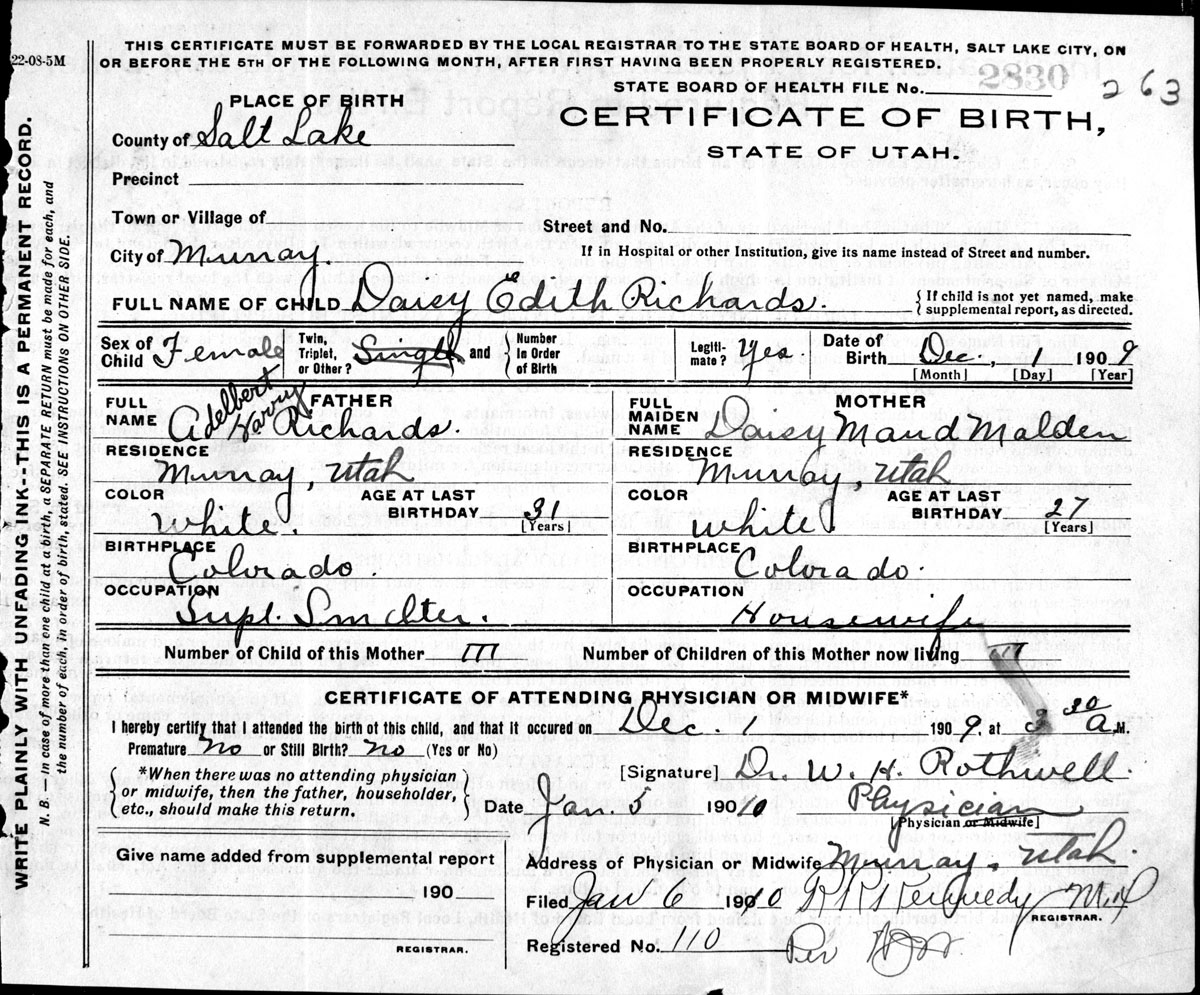 22-08-5M
THIS CERTIFICATE MUST BE FORWARDED BY THE LOCAL REGISTRAR TO THE STATE BOARD OF HEALTH, SALT LAKE CITY, ON
OR BEFORE THE 5TH OF THE FOLLOWING MONTH, AFTER FIRST HAVING BEEN PROPERLY REGISTERED.
STATE BOARD OF HEALTH FILE No. 2830 263
CERTIFICATE OF BIRTH,
STATE OF UTAH.
PLACE OF BIRTH
County of Salt Lake
Precinct
Town or Village of
Street and No.
City of Murray.
If in Hospital or other Institution, give its name instead of Street and number.
FULL NAME OF CHILD Daisy Edith Richards.
If child is not yet named, make
supplemental report, as directed.
Sex of Child Female
Twin, Triplet, or Other? Single and
Number in Order of Birth
Legiti- mate? Yes.
Date of Birth Dec. 1, 1909
[Month] [Day] [Year]
FATHER
FULL NAME Adelbert Harry Richards.
RESIDENCE
Murray, Utah
COLOR
white.
AGE AT LAST BIRTHDAY 31
[Years]
BIRTHPLACE
Colorado.
OCCUPATION
Supt. Smelter.
MOTHER
FULL MAIDEN NAME Daisy Maud Malden
RESIDENCE
Murray, Utah
COLOR
white
AGE AT LAST BIRTHDAY 27
[Years]
BIRTHPLACE
Colorado.
OCCUPATION
Housewife
Number of Child of this Mother III
Number of Children of this Mother now living III
CERTIFICATE OF ATTENDING PHYSICIAN OR MIDWIFE*
I hereby certify that I attended the birth of this child, and that it occured on Dec. 1 1909. at 3 30 a. M.
Premature No or Still Birth? No (Yes or No)
*When there was no attending physician
or midwife, then the father, householder,
etc., should make this return.
[Signature] Dr. W. H. Rothwell.
Date Jan 5 1910 Physician
[Physician or Midwife]
Give name added from supplemental report
190
REGISTRAR.
Address of Physician or Midwife Murray, Utah.
Filed Jan 6 1910 Kennedy M.D.
REGISTRAR.
Registered No. 110 Per
WRITE PLAINLY WITH UNFADING INK--THIS IS A PERMANENT RECORD.
N. B. — In case of more than one child at a birth, a SEPARATE RETURN must be made for each, and
the number of each, in order of birth, stated. SEE INSTRUCTIONS ON OTHER SIDE.